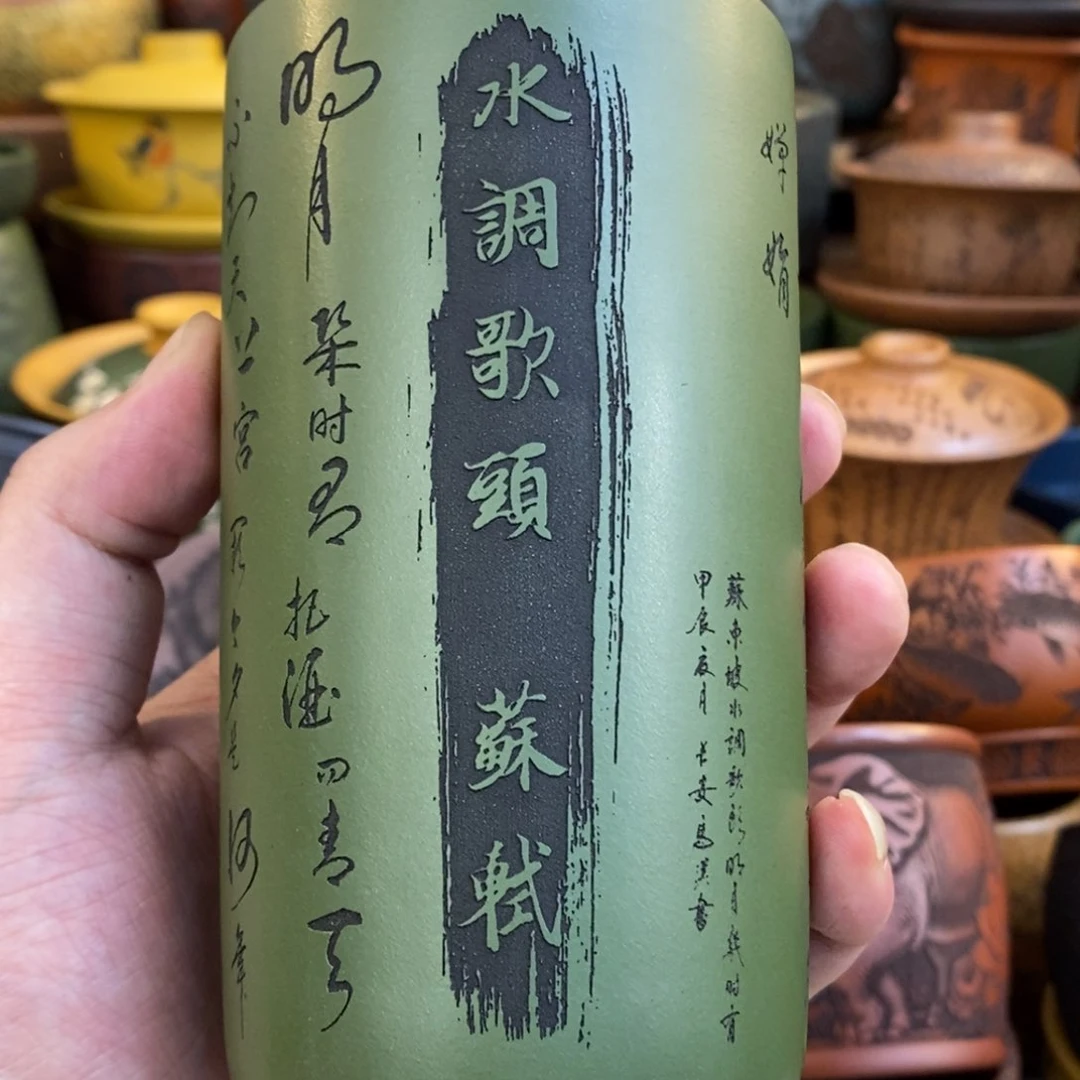 嬋娟
蘇東坡水調歌頭明月幾时有
甲辰夏月 長安馬書
水調歌頭 蘇軾
明月幾时有 把酒問青天
不知天上宮闕今夕是何年